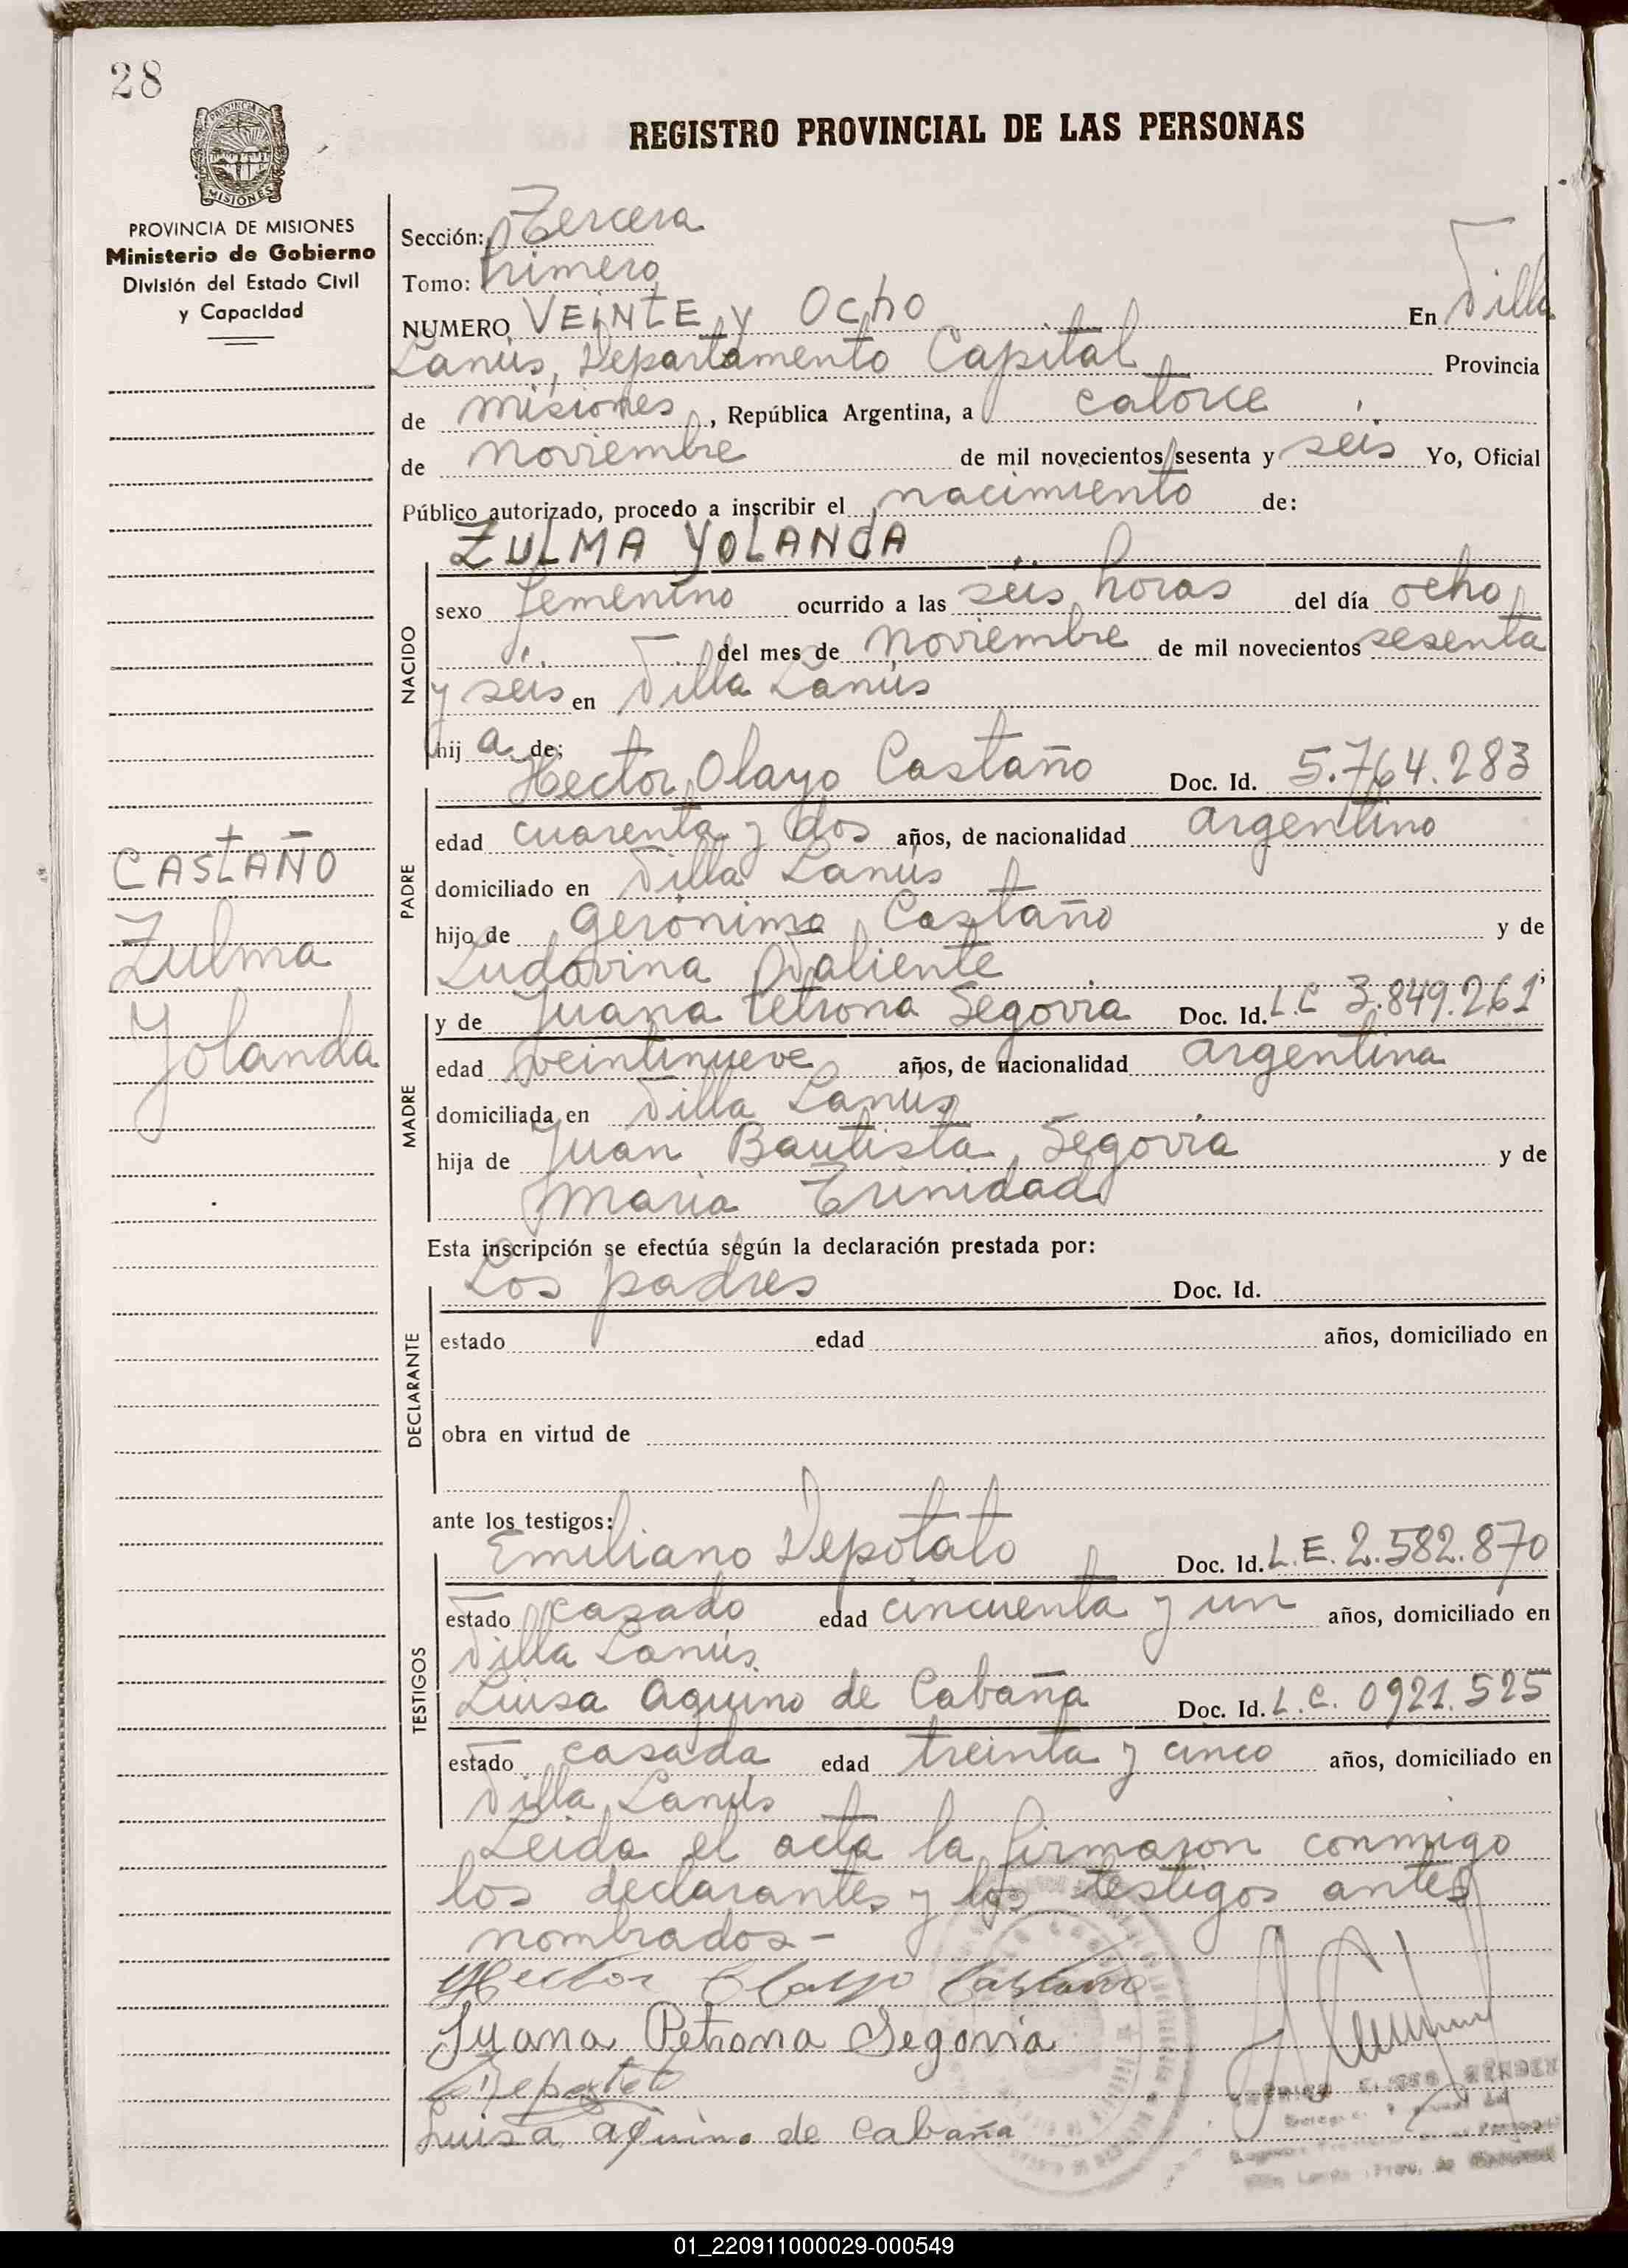 28
REGISTRO PROVINCIAL DE LAS PERSONAS
PROVINCIA DE MISIONES
MISIONES
PROVINCIA DE MISIONES
Ministerio de Gobierno
División del Estado Civil
y Capacidad
Sección: Tercera
Tomo: Primero
NUMERO VEINTE y Ocho En Villa
Lanús, Departamento Capital Provincia
de Misiones, República Argentina, a catorce
de Noviembre de mil novecientos sesenta y seis Yo, Oficial
Público autorizado, procedo a inscribir el nacimiento de:
ZULMA YOLANDA
NACIDO
sexo femenino ocurrido a las séis horas del día ocho
del mes de Noviembre de mil novecientos sesenta
y seis en Villa Lanús
hij a de:
Hector Olayo Castaño Doc. Id. 5.764.283
PADRE
edad cuarenta y dos años, de nacionalidad argentino
domiciliado en Villa Lanús
hijo de Gerónimo Castaño y de
Ludovina Valiente
y de Juana Petrona Segovia Doc. Id. L.C 3.849.261
MADRE
edad veintinueve años, de nacionalidad argentina
domiciliada en Villa Lanús
hija de Juan Bautista Segovia y de
Maria Trinidad
CASTAÑO
Zulma
Yolanda
Esta inscripción se efectúa según la declaración prestada por:
Los padres Doc. Id.
DECLARANTE
estado edad años, domiciliado en
obra en virtud de
ante los testigos:
Emiliano Depotato Doc. Id. L.E. 2.582.870
TESTIGOS
estado casado edad cincuenta y un años, domiciliado en
Villa Lanús.
Luisa Aquino de Cabaña Doc. Id. L.C. 0921.525
estado casada edad treinta y cinco años, domiciliado en
Villa Lanús
Leida el acta la firmaron conmigo
los declarantes y los testigos antes
nombrados-
Hector Olayo Castaño
Juana Petrona Segovia
Luisa aquino de Cabaña
01_220911000029-000549